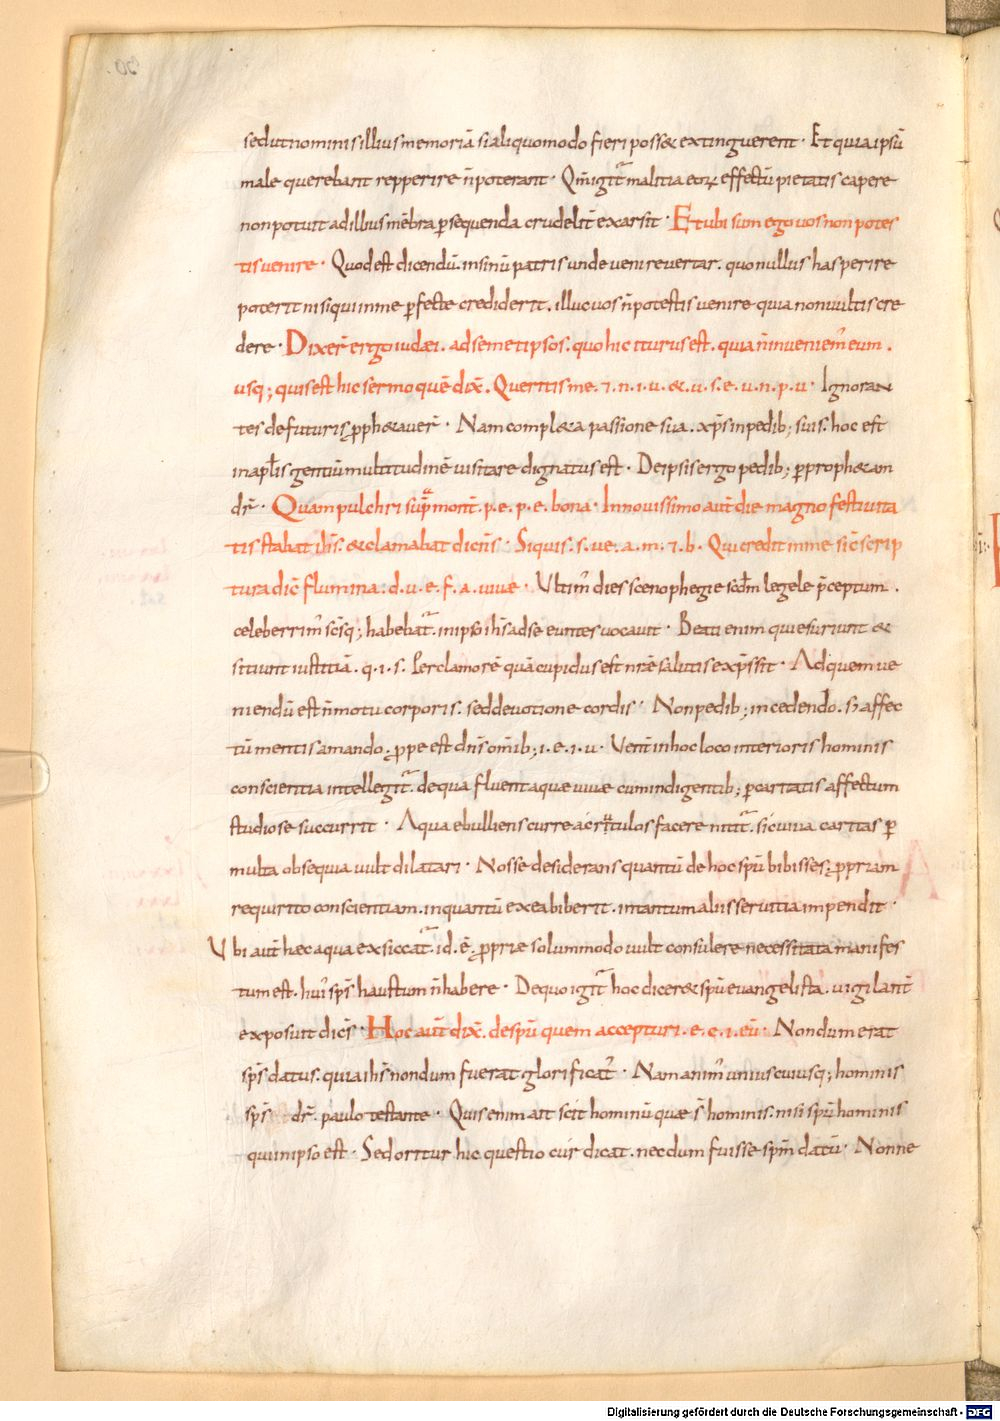 sed ut nominis illius memoriā si aliquo modo fieri poss& extinguerent · Et quia ipsū
male querebant repperire n̄ poterant · Qm̄ igit̄ malitia eoꝝ effectū pietatis capere
non potuit ad illius mēbra ꝑsequenda crudelit̄ exarsit · Et ubi sum ego uos non potes
tis uenire · Quod est dicendū. in sinū patris unde ueni reuertar. quo nullus has perire
poterit nisi qui in me ꝑfecte crediderit. illuc uos n̄ potestis uenire quia non uultis cre
dere · Dixer̄ ergo iudæi. ad semetipsos. quo hic iturus est. quia n̄ inueniem̾ eum .
usq; quis est hic sermo quē dix̄. Queritis me. ⁊. n. i. u. &. u. s. e. u. n. p. u · Ignoran
tes de futuris ꝓph&auer̄ · Nam compl&a passione sua. xp̄s in pedib; suis. hoc est
in apl̄is gentiū multitudinē uisitare dignatus est · De ipsis ergo pedib; ꝑ proph&am
dr̄ · Quam pulchri sup̄ mont̄. p. e. p. e. bona · In nouissimo aut̄ die magno festiuita
tis stabat ih̄s. & clamabat dicēs · Siquis. s. ue. a. m. ⁊. b. Qui credit in me sic̄ scrip
tura dic̄ flumina. d. u. e. f. a. uiue · Vltim̾ dies scenophegie scd̄m legale p̄ceptum .
celeberrim̾ sc̄sq; habebat̄. in ipso ih̄s ad se euntes uocauit · Beati enim qui esuriunt &
sitiunt iustitiā. q. i. s. Per clamorē quā cupidus est nr̄ę salutis exp̄ssit · Ad quem ue
niendū est n̄ motu corporis. sed deuotione cordis · Non pedib; incedendo. s; affec
tū mentis amando. ꝓpe est dn̄s om̄ib; i. e. i. u · Vent̄ in hoc loco interioris hominis
conscientia intellegit̄. de qua fluent aquæ uiuæ cum indigentib; ꝑ caritatis affectum
studiose succurrit · Aqua ebulliens currere ac riuulos facere nitit̄. sic uiua caritas ꝑ
multa obsequia uult dilatari · Nosse desiderans quantū de hoc spū bibisses, ꝓpriam
requirito conscientiam. in quantū ex ea biberit. in tantum aliis seruitia impendit ·
Vbi aut̄ hæc aqua exsiccat̄. id. ē. ꝓpriæ solummodo uult consulere necessitati manifes
tum est. hui̾ sp̄s haustum n̄ habere · De quo igit̄ hoc dicer& spū euangelista. uigilant̄
exposuit dicēs · Hoc aut̄ dix̄. de spū quem accepturi. e. c. i. eū · Nondum erat
sp̄s datus. quia ih̄s nondum fuerat glorificat̾ · Nam anim̾ uniuscuiusq; hominis
sp̄s dr̄. paulo testante · Quis enim ait scit hominū quæ s̄ hominis. nisi spū hominis
qui in ipso est · Sed oritur hic questio cur dicat. necdum fuisse spm̄ datū · Nonne
Digitalisierung gefördert durch die Deutsche Forschungsgemeinschaft - DFG